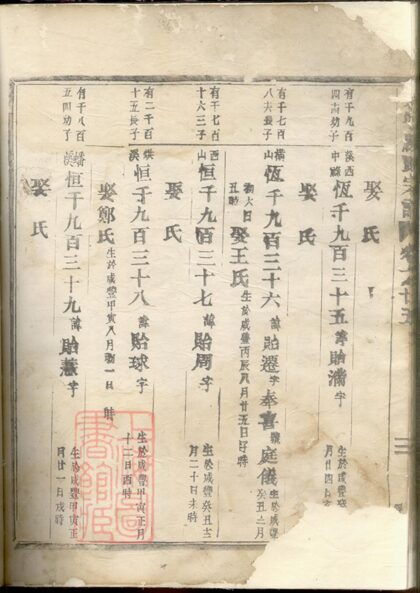 有千九百
四十幼子
溪西
中縣
恆千九百三十五
諱
貽滿
字
生於咸豐
月廿四
娶 氏
有千七百
八夫長子
橫山
恆千九百三十六
諱
貽遷
字
奉喜
號
庭儀
生於咸豐
癸丑二月
初六日
丑時
娶王氏
生於咸豐丙辰八月廿五日好時
娶 氏
有千七百
十六三子
西山
恒千九百三十七
諱
貽周
字
生於咸豐癸丑十
月二十日未時
娶 氏
有二千百
十五長子
溪
恒千九百三十八
諱
貽球
字
生於咸豐甲寅正月
十二日酉時
娶鄭氏
生於咸豐甲寅八月初一日 時
有千八百
五四幼子
溪
恒千九百三十九
諱
貽
字
生於咸豐甲寅正
月廿一日戌時
娶 氏